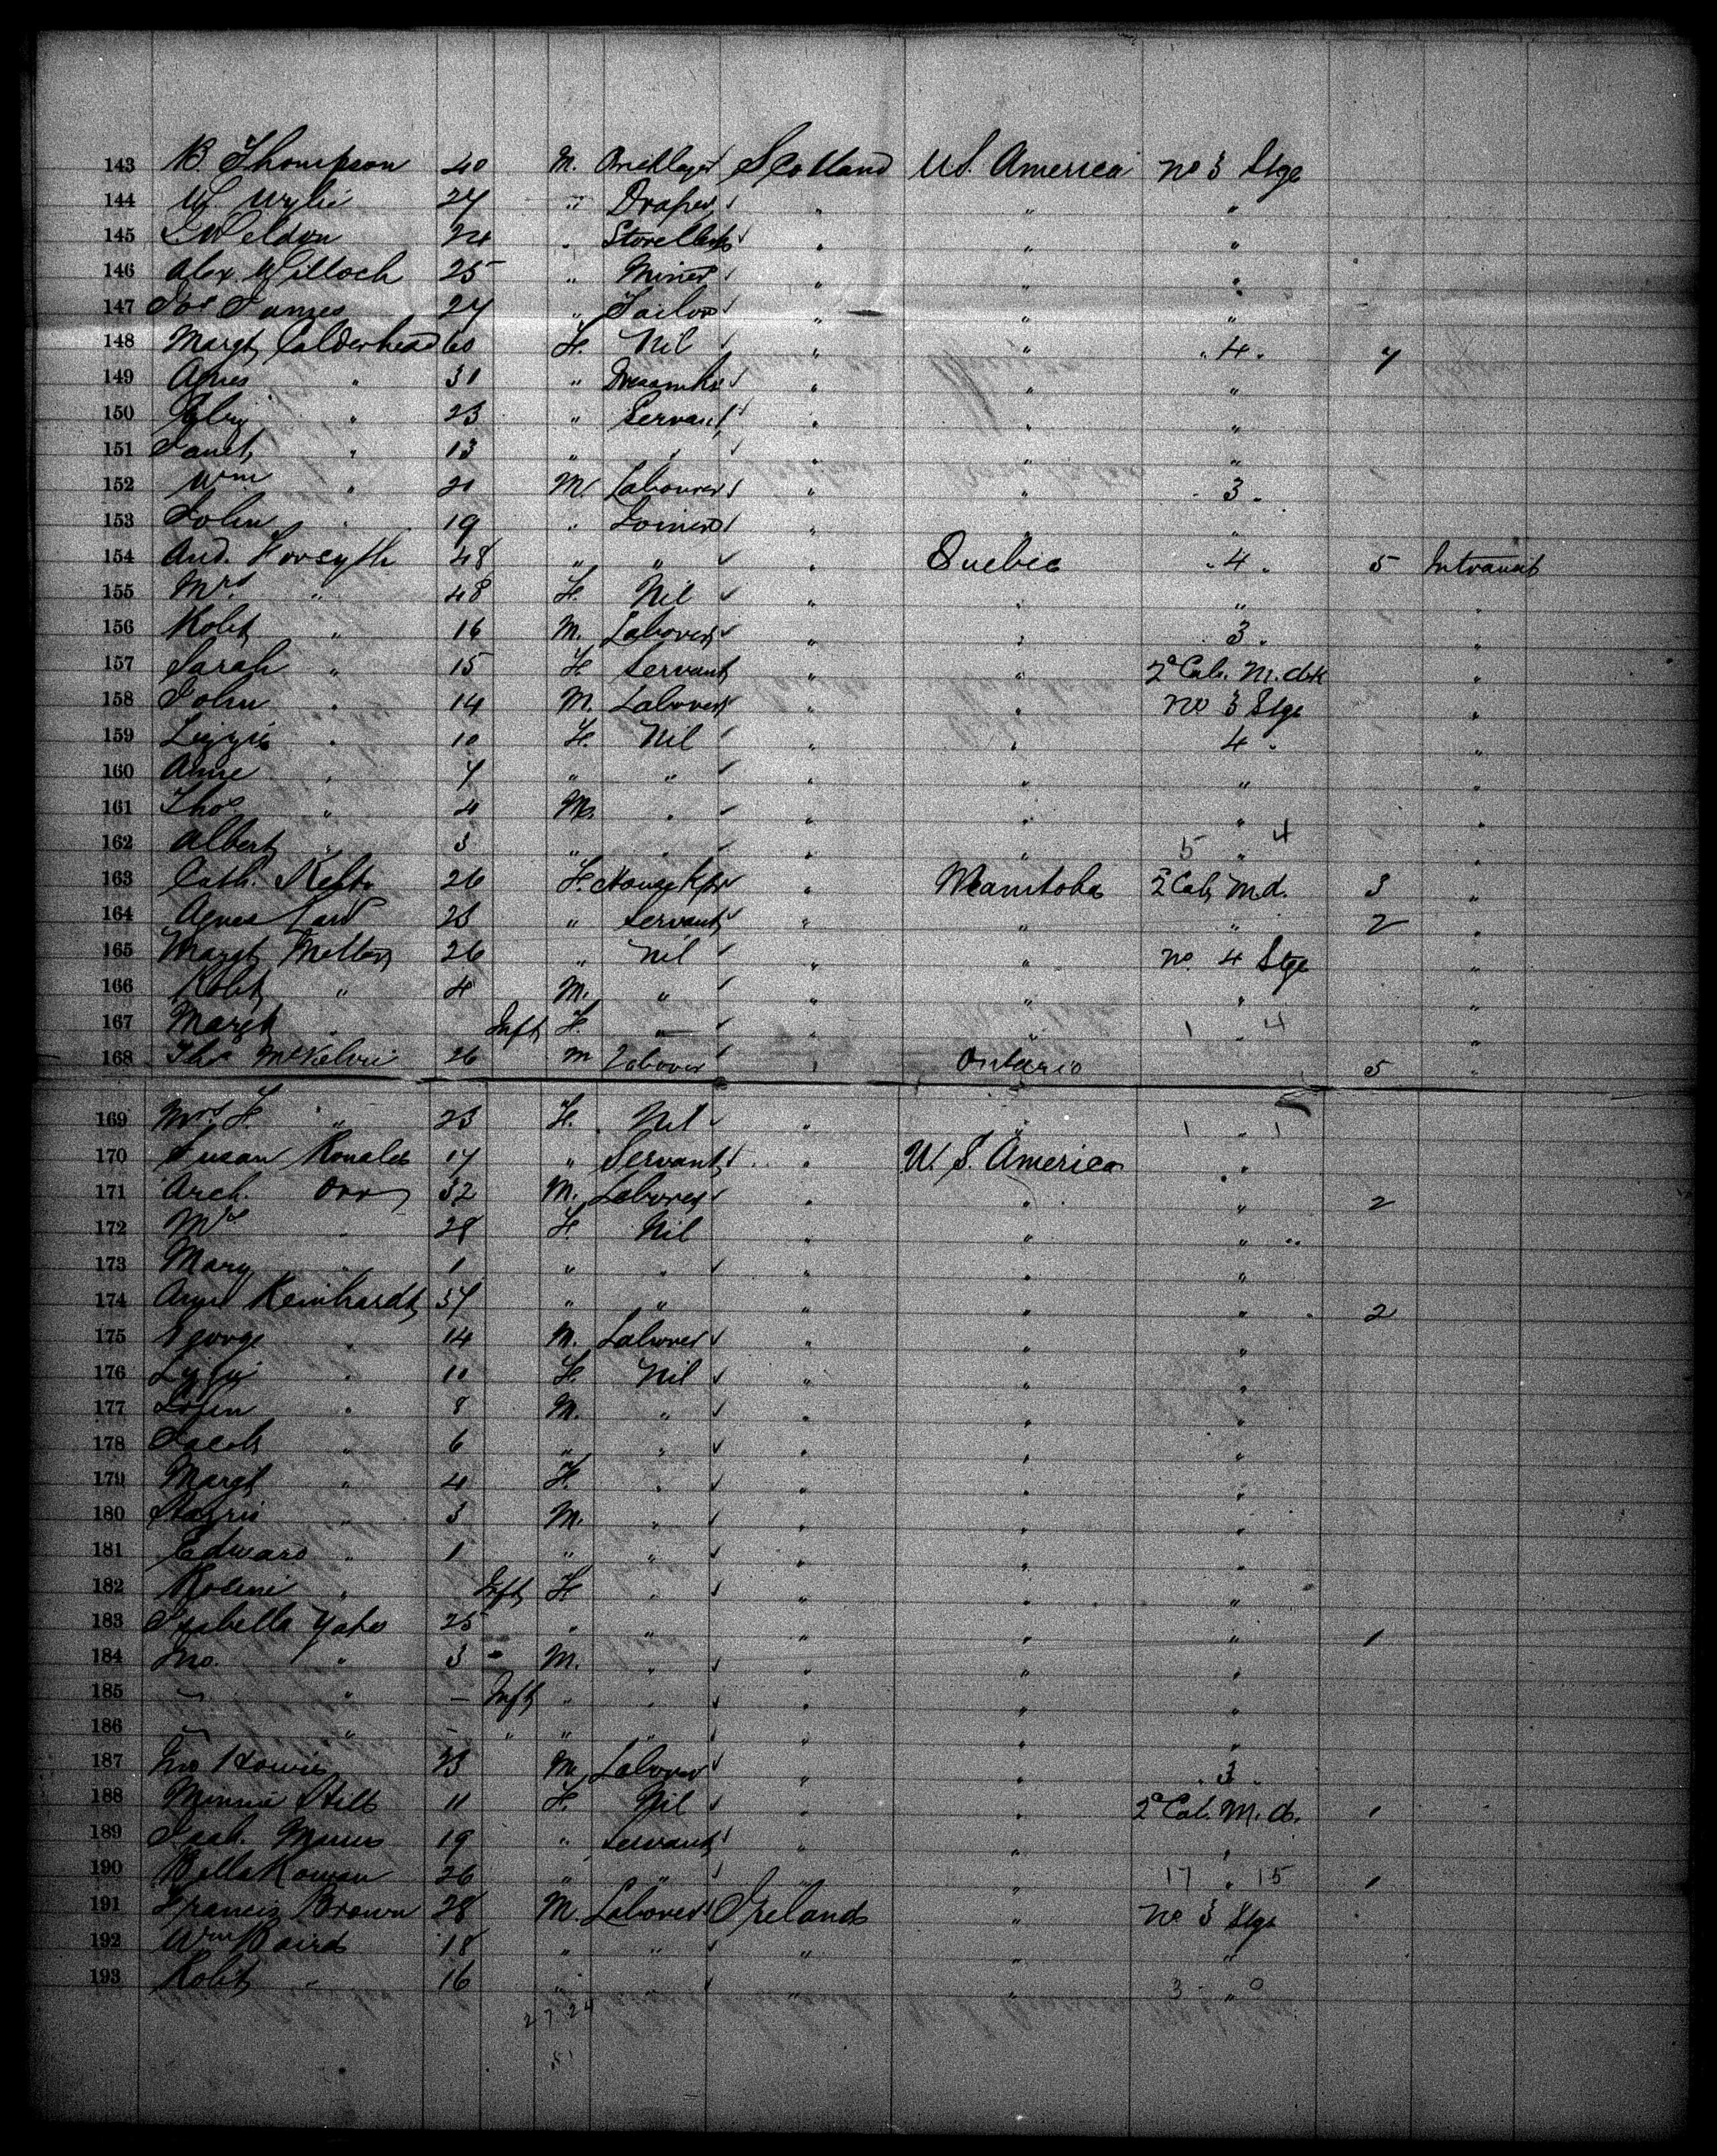 143 B. Thompson 40 M. Bricklayer Scotland U.S. America No 3 Stge
144 W Wylie 27 " Draper " " "
145 Weldon 24 " Storeclerk " " "
146 Alex. 25 " Miner " " "
147 Jas James 27 " Tailor " " "
148 Margt Calderhead 60 F. Nil " " " 4 "
149 Agnes " 31 " Dressmkr " " "
150 " 23 " Servant " " "
151 Janet " 13 " " " " "
152 Wm " 21 M. Labourer " " " 3 "
153 John " 19 " Joiner " " "
154 And. Forsyth 48 " " " Quebec " 4 " 5 Intransit
155 Mrs " 48 F. Nil " " " "
156 Robt " 16 M. Laborer " " 3 " "
157 Sarah " 15 F Servant " " 2d Cab. M. dk "
158 John " 14 M. Laborer " " No 3 Stge "
159 Lizzie " 10 F. Nil " " 4 " "
160 Anne " 7 " " " " " "
161 Thos " 4 M. " " " " "
162 Albert " 3 " " " " 5 " 4 "
163 Cath. 26 F. Housekpr " Manitoba 2 Cab M d. 3 "
164 Agnes 23 " Servant " " " 2 "
165 Margt 26 " Nil " " No 4 Stge "
166 Robt " 4 M. " " " " "
167 Margt " Inft F. " " " 1 " 4 "
168 Thos McKelvie 26 M Laborer " Ontario 5 "
169 Mrs F. " 23 F. Nil " " 1 " 1
170 Susan Ronald 17 " Servant " U. S. America "
171 Arch. Orr 32 M. Laborer " " " 2
172 Mrs " 28 F. Nil " " "
173 Mary " 1 " " " " "
174 Reinhardt 37 " " " " " 2
175 George " 14 M. Laborer " " "
176 Lizzie " 10 F. Nil " " "
177 John " 8 M. " " " "
178 Jacob " 6 " " " " "
179 Margt " 4 F. " " " "
180 Harris " 3 M. " " " "
181 Edward " 1 " " " " "
182 Rosini " Inft F " " " "
183 Isabella Yates 25 " " " " " 1
184 Jno. " 3 - M. " " " "
185 – " – Inft " " " " "
186 – " – " " " " " "
187 Jno Howie 23 M Laborer " " " 3 "
188 Minnie 11 F. Nil " " 2d Cab. M. d. 1
189 Isab. 19 " Servant " " "
190 Bella Rowan 26 " " " " 17 " 15 1
191 Francis Brown 28 M. Laborer Ireland " No 3 Stge
192 Wm Baird 18 " " " " "
193 Robt " 16 " " " " 3 " 0
27 24
51